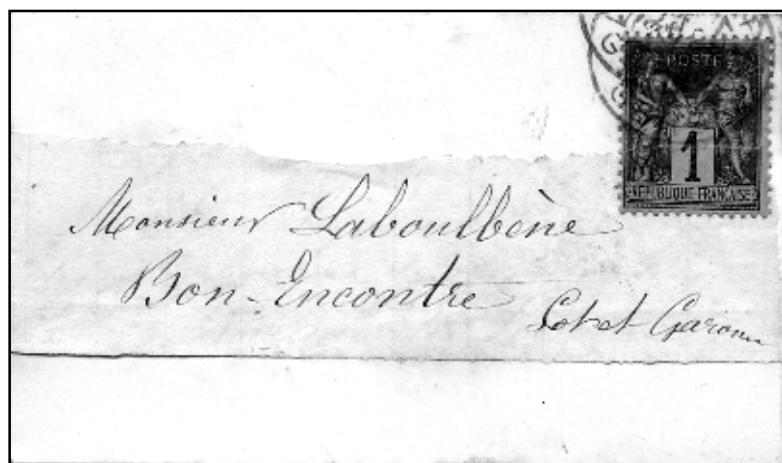 POSTE
1
RÉPUBLIQUE FRANÇAISE
Monsieur Laboulbène
Bon-Encontre
Lot et Garonne